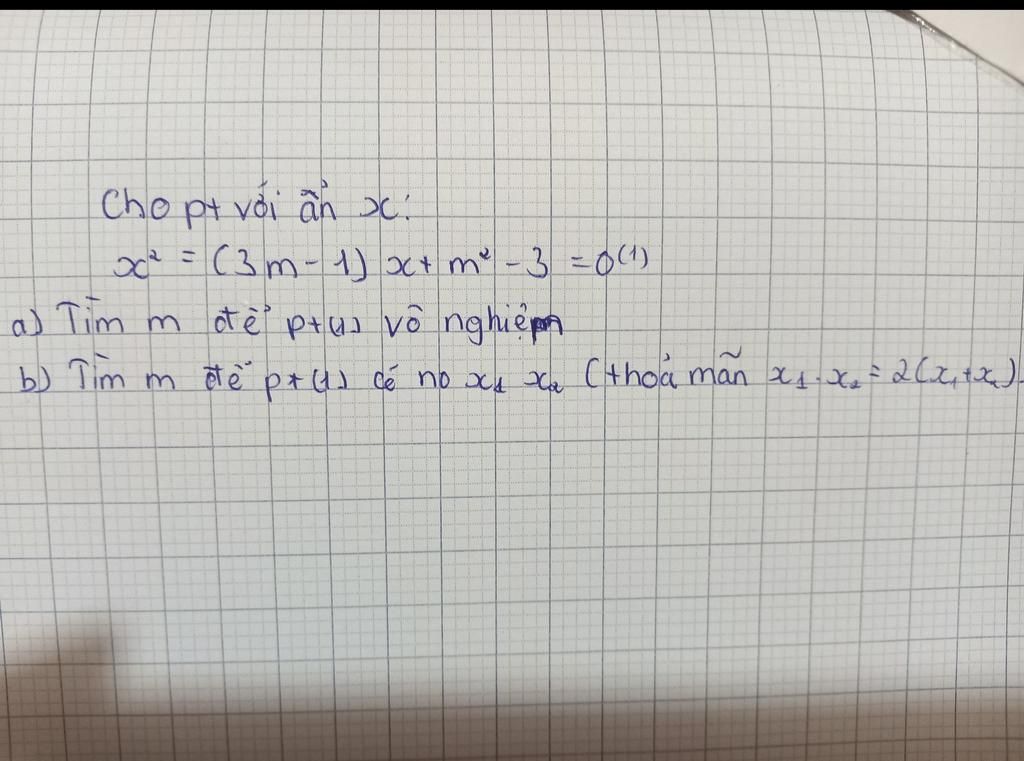 Cho pt với ẩn x:
x² = (3m - 1) x + m² - 3 = 0 (1)
a) Tìm m để pt (1) vô nghiệm
b) Tìm m để pt (1) có no x₁ x₂ (thoả mãn x₁ . x₂ = 2(x₁ + x₂)